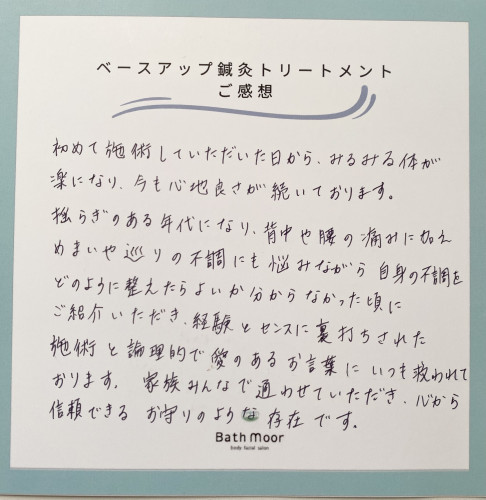 ベースアップ鍼灸トリートメント
ご感想
初めて施術していただいた日から、みるみる体が
楽になり、今も心地良さが続いております。
揺らぎのある年代になり、背中や腰の痛みに加え
めまいや巡りの不調にも悩みながら自身の不調を
どのように整えたらよいか分からなかった頃に
ご紹介いただき、経験とセンスに裏打ちされた
施術と論理的で愛のあるお言葉にいつも救われて
おります。家族みんなで通わせていただき、心から
信頼できるお守りのような存在です。
Bath Moor
body facial salon